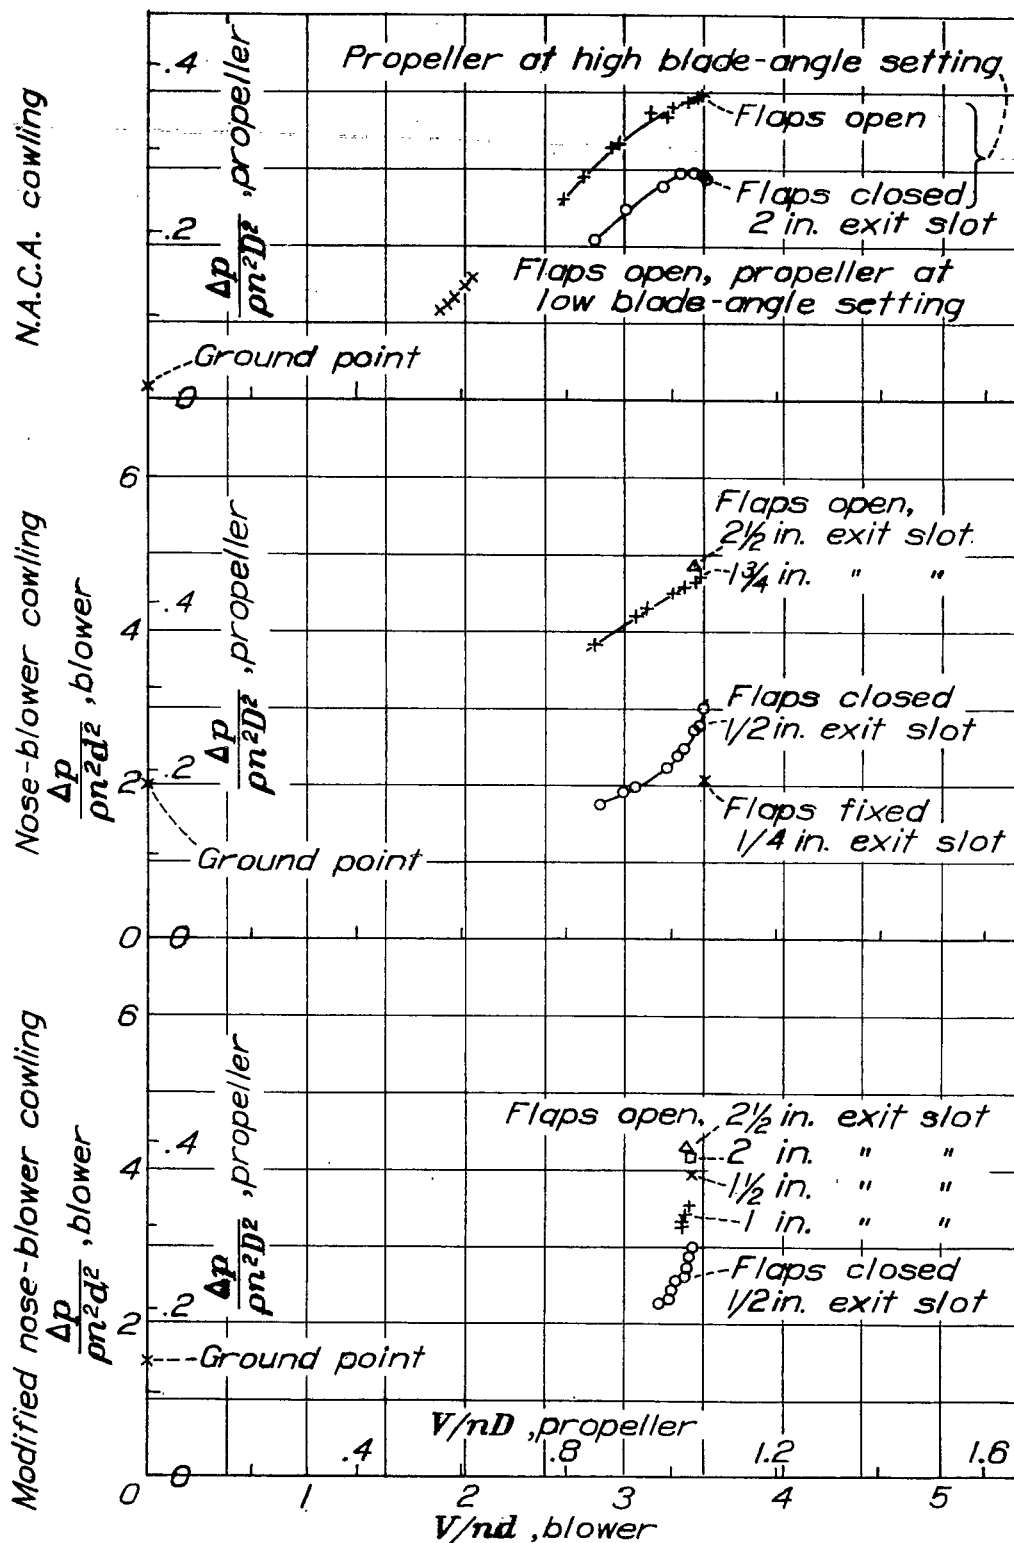 N.A.C.A. cowling
Δp/ρn²D², propeller
.4
.2
0
Propeller at high blade-angle setting
Flaps open
Flaps closed,
2 in. exit slot
Flaps open, propeller at
low blade-angle setting
Ground point
Nose-blower cowling
Δp/ρn²d², blower
Δp/ρn²D², propeller
6
4
2
0
.4
.2
0
Flaps open,
2½ in. exit slot
1¾ in. " "
Flaps closed
1/2 in. exit slot
Flaps fixed
1/4 in. exit slot
Ground point
Modified nose-blower cowling
Δp/ρn²d², blower
Δp/ρn²D², propeller
6
4
2
0
.4
.2
0
Flaps open, 2½ in. exit slot
2 in. " "
1½ in. " "
1 in. " "
Flaps closed
1/2 in. exit slot
Ground point
V/nD, propeller
.4 .8 1.2 1.6
1 2 3 4 5
V/nd, blower